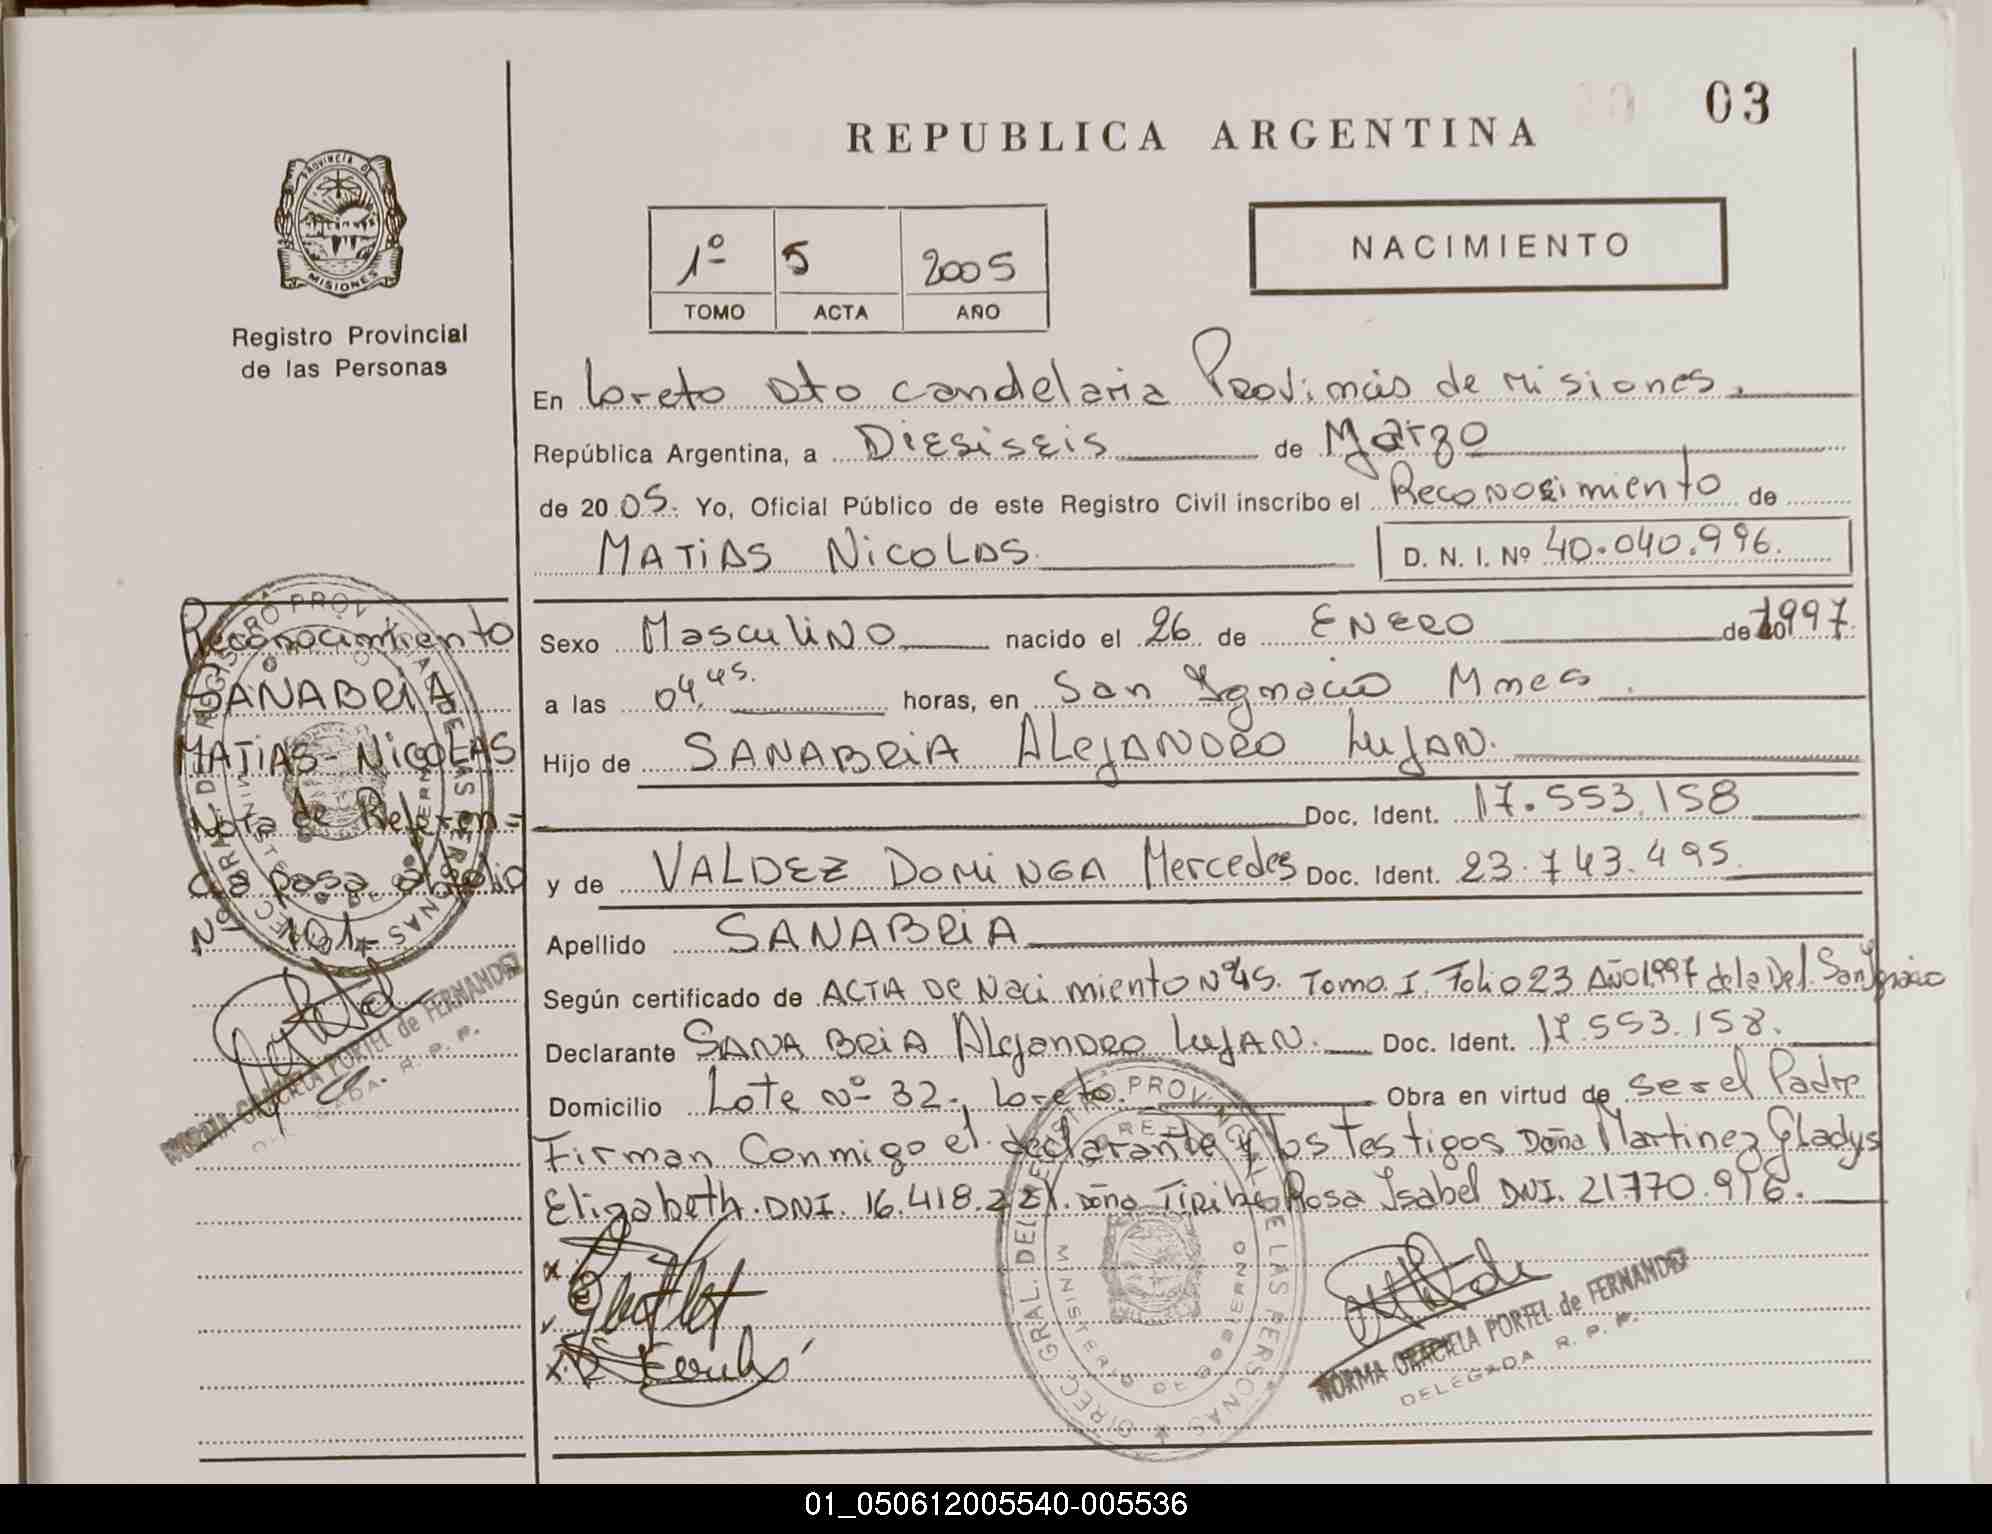 03
REPUBLICA ARGENTINA
PROVINCIA DE
MISIONES
Registro Provincial
de las Personas
1º 5 2005
TOMO ACTA AÑO
NACIMIENTO
En Loreto Dto Candelaria Provincias de Misiones.
República Argentina, a Diesiseis de Marzo
de 2005. Yo, Oficial Público de este Registro Civil inscribo el Reconosimiento de
MATIAS NICOLAS. D. N. I. Nº 40.040.996.
Sexo Masculino nacido el 26 de ENERO de 1997.
a las 04,45. horas, en San Ignacio Mnes.
Hijo de SANABRIA ALEJANDRO LUJAN.
Doc. Ident. 17.553.158
y de VALDEZ DOMINGA Mercedes Doc. Ident. 23.743.495.
Apellido SANABRIA
Según certificado de ACTA DE Nacimiento Nº45. Tomo I. Folio 23 Año 1.997 de la Del. San Ignacio
Declarante SANABRIA Alejandro Lujan. Doc. Ident. 17.553.158.
Domicilio Lote Nº 32., Loreto. Obra en virtud de ser el Padre
Firman Conmigo el declarante y los Testigos Doña Martinez Gladys
Elizabeth. DNI. 16.418.221. Doña Rosa Isabel DNI. 21.770.916.
Reconocimiento
SANABRIA
MATIAS-NICOLAS
Nota de Referen=
cia pasa al folio
Nº 101
NORMA GRACIELA PORTEL de FERNANDEZ
DELEGADA R. P. P.
NORMA GRACIELA PORTEL de FERNANDEZ
DELEGADA R. P. P.
01_050612005540-005536